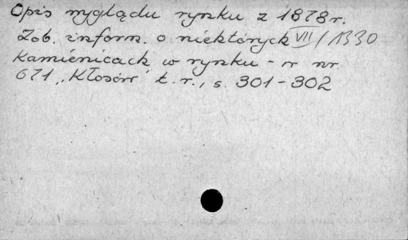 Opis wyglądu rynku z 1878r.
Zob. inform. o niektórych VII/1330
kamienicach w rynku - w nr
671 „Kłosów" t. r., s. 301-302